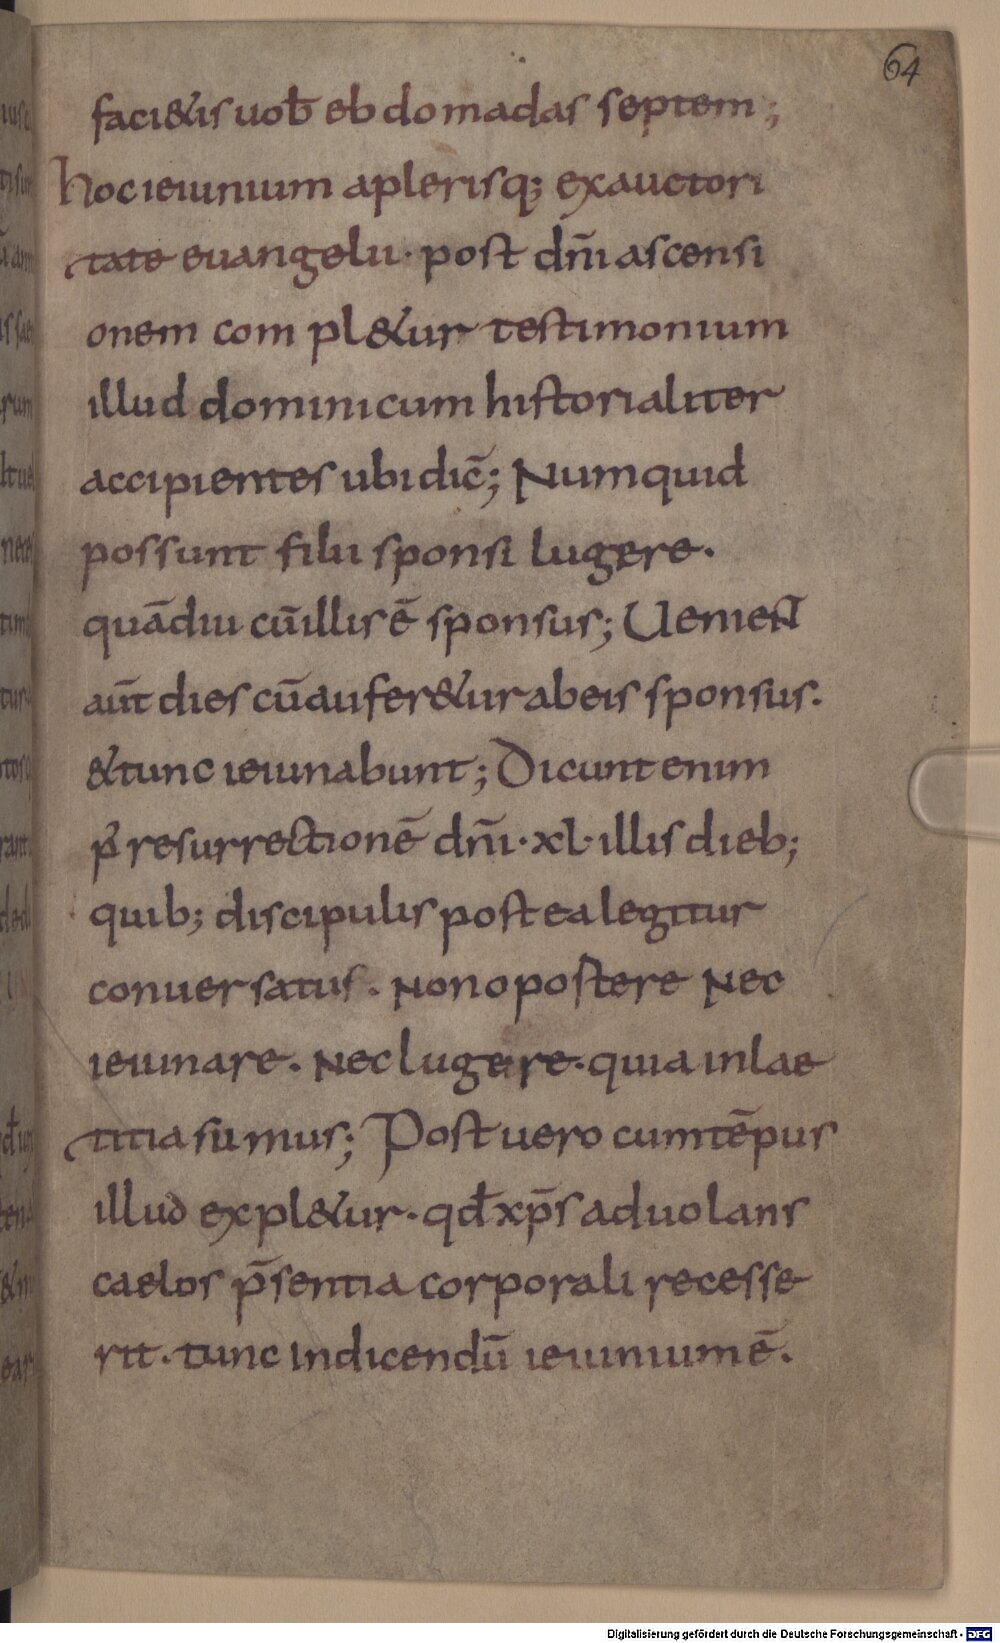 64
faci&is uob̄ ebdomadas septem;
hoc ieiunium a plerisq; ex auctori
tate euangelii · post dn̄i ascensi
onem compl&ur testimonium
illud dominicum historialiter
accipientes ubi dic̄; Numquid
possunt filii sponsi lugere.
quādiu cū illis ē sponsus; Uenient
aūt dies cū aufer&ur ab eis sponsus.
& tunc ieiunabunt; Dicunt enim
p̄ resurrectionē dn̄i · xl · illis dieb;
quib; discipulis post ea legitur
conuersatus. Non oportere Nec
ieiunare. Nec lugere. quia in lae
titia sumus; Post uero cum tēpus
illud expl&ur · qđ xp̄s aduolans
caelos p̄sentia corporali recesse
rit. tunc indicendū ieiunium ē.
Digitalisierung gefördert durch die Deutsche Forschungsgemeinschaft - DFG